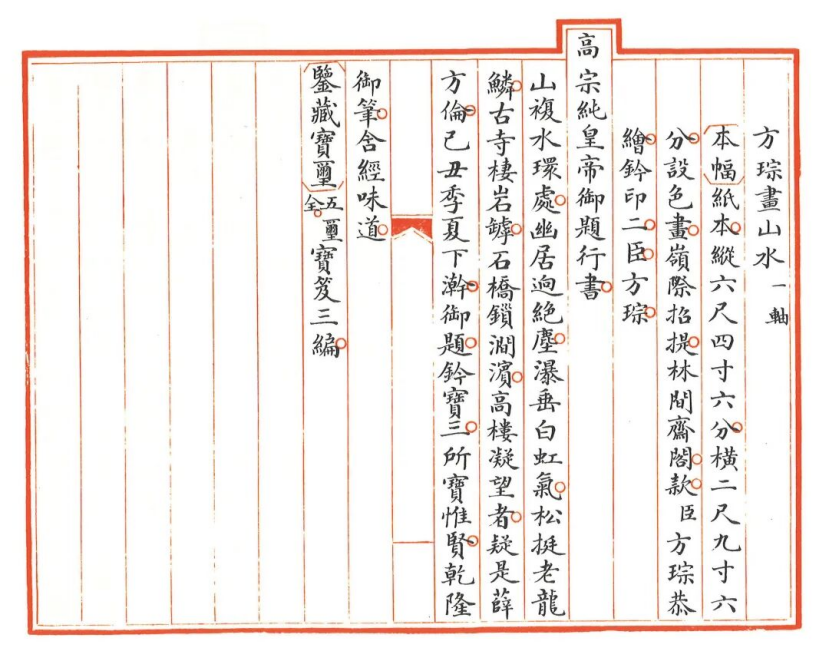 方琮畫山水 一軸
本幅紙本縱六尺四寸六分橫二尺九寸六
分設色畫嶺際招提林間齋閣款臣方琮恭
繪鈐印二臣方琮
高宗純皇帝御題行書
山複水環處幽居迥絕塵瀑垂白虹氣松挺老龍
鱗古寺棲岩罅石橋鎖澗濱高樓凝望者疑是薛
方倫己丑季夏下澣御題鈐寶三所寶惟賢乾隆
御筆含經味道
鑒藏寶璽五璽全寶笈三編